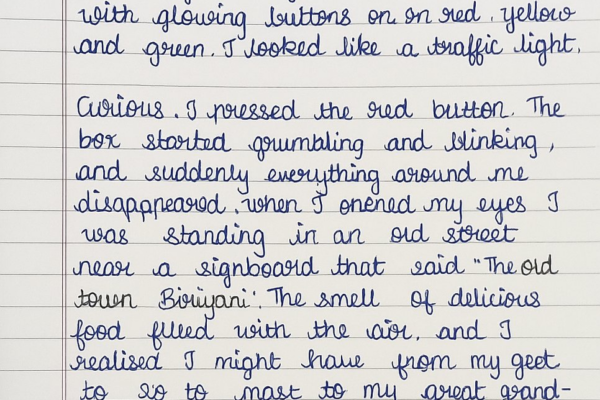 with glowing buttons on on red, yellow
and green. I looked like a traffic light.
Curious. I pressed the red button. The
box started grumbling and blinking,
and suddenly everything around me
disappeared. when I opened my eyes I
was standing in an old street
near a signboard that said "The old
town Biriyani". The smell of delicious
food filled with the air. and I
realised I might have from my geet
to go to mast to my great grand-